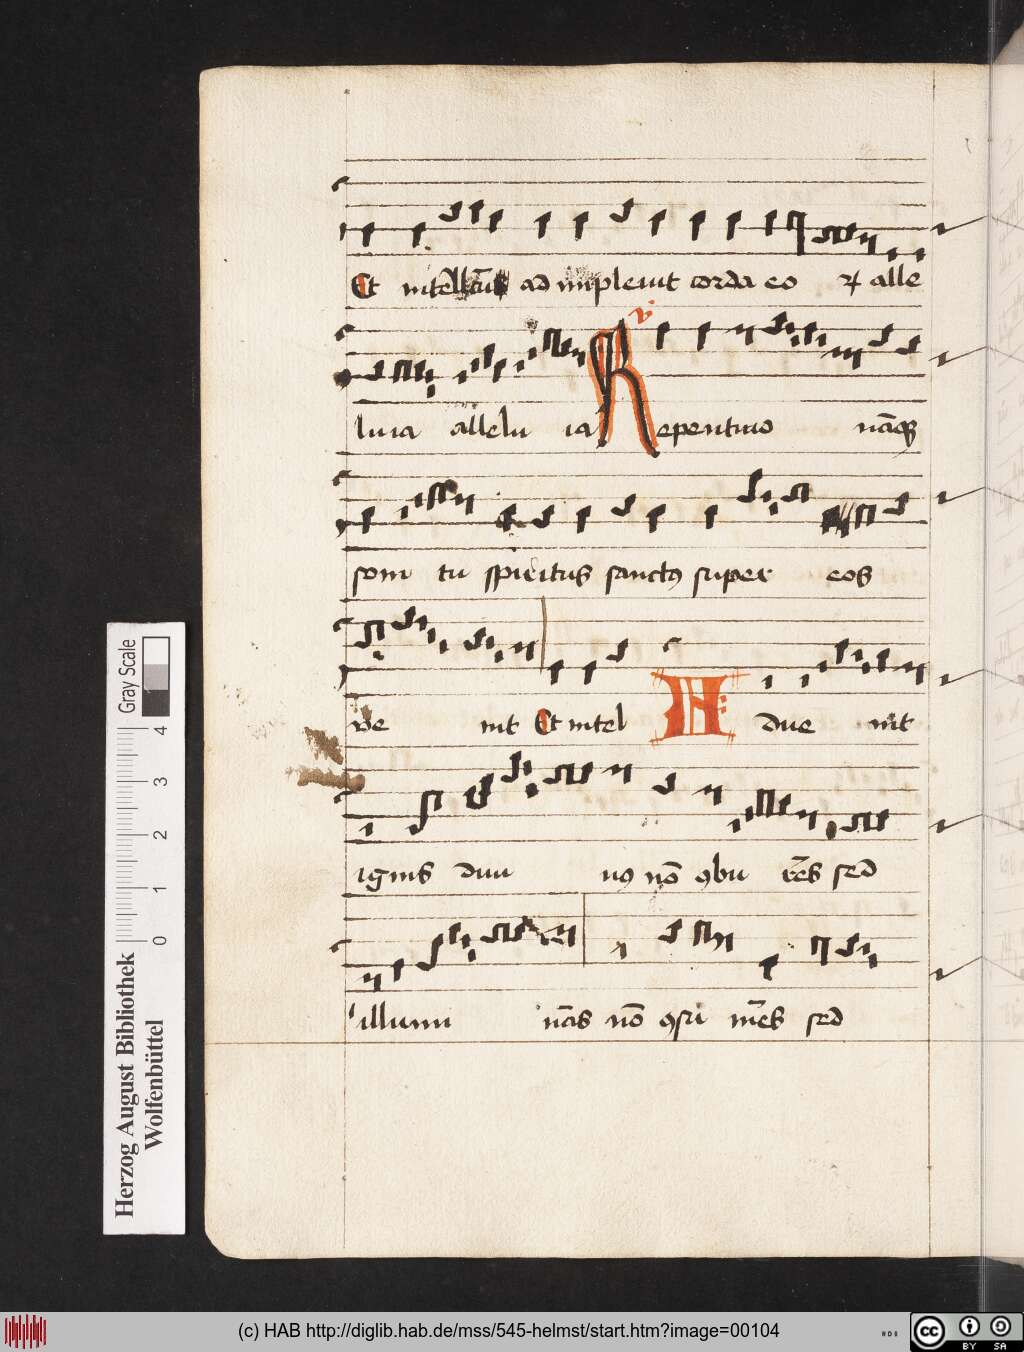 Et intellectus ad impleuit corda eo ꝝ alle
v.
luia allelu ia Repentino nāqꝫ
som tu spiritus sanctꝰ super eos
ve nit Et intel Aduenit
ignis diui nꝰ nō ꝯbu rēs sed
illumi nās nō ꝯsu mēs sed
Gray Scale
4
3
2
1
0
Herzog August Bibliothek
Wolfenbüttel
(c) HAB http://diglib.hab.de/mss/545-helmst/start.htm?image=00104
cc BY SA